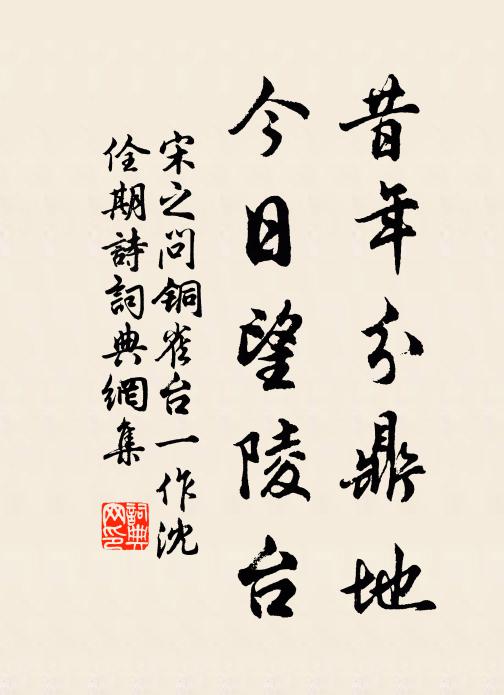 昔年分鼎地
今日望陵台
宋之问铜雀台一作沈
佺期詩詞典網集
詞典网印